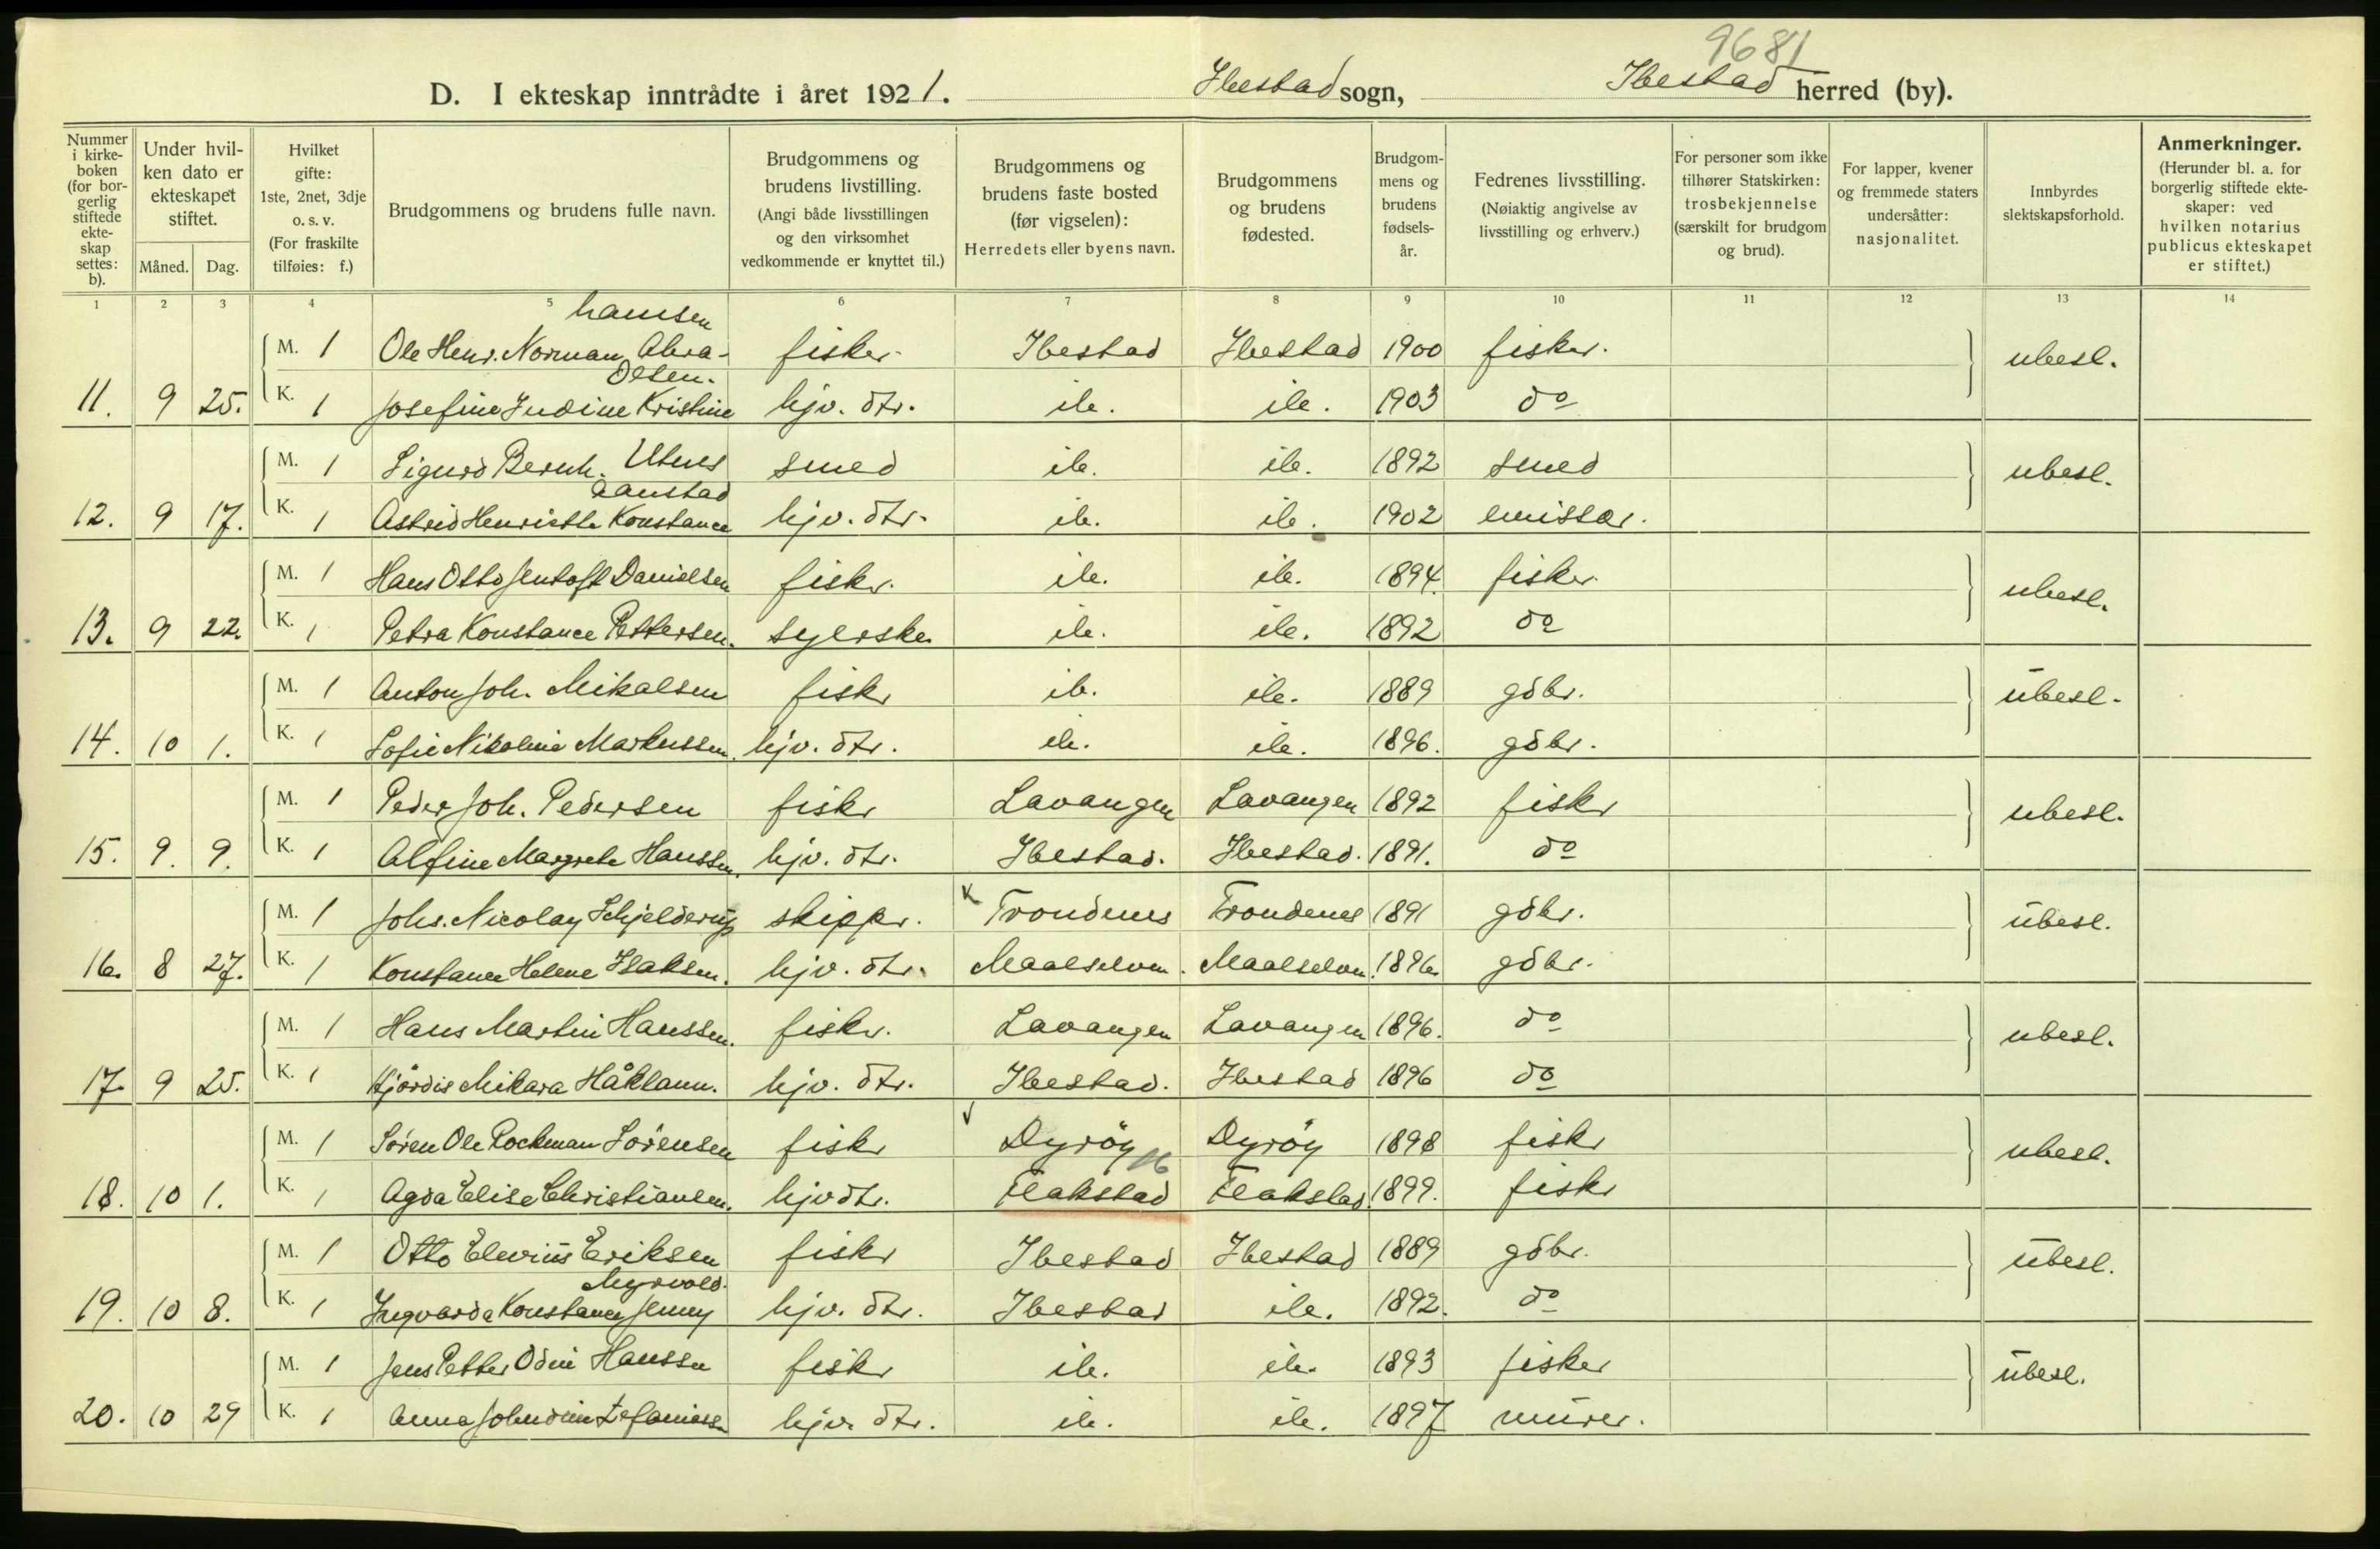 9681
D. I ekteskap inntrådte i året 1921. Ibestad sogn, Ibestad herred (by).
Nummer i kirkeboken (for borgerlig stiftede ekteskap settes: b).
Under hvilken dato er ekteskapet stiftet.
Måned. Dag.
Hvilket gifte: 1ste, 2net, 3dje o. s. v. (For fraskilte tilføies: f.)
Brudgommens og brudens fulle navn.
Brudgommens og brudens livstilling. (Angi både livsstillingen og den virksomhet vedkommende er knyttet til.)
Brudgommens og brudens faste bosted (før vigselen): Herredets eller byens navn.
Brudgommens og brudens fødested.
Brudgommens og brudens fødselsår.
Fedrenes livsstilling. (Nøiaktig angivelse av livsstilling og erhverv.)
For personer som ikke tilhører Statskirken: trosbekjennelse (særskilt for brudgom og brud).
For lapper, kvener og fremmede staters undersåtter: nasjonalitet.
Innbyrdes slektskapsforhold.
Anmerkninger. (Herunder bl. a. for borgerlig stiftede ekteskaper: ved hvilken notarius publicus ekteskapet er stiftet.)
1 2 3 4 5 6 7 8 9 10 11 12 13 14
hamsen
M. 1 Ole Henr. Norman Abra- fisker Ibestad Ibestad 1900 fisker. ubesl.
Olsen.
11. 9 25. K. 1 Josefine Judine Kristine hjv. dtr. ib. ib. 1903 do
M. 1 Sigurd Bernh. Utnes smed ib. ib. 1892 smed ubesl.
Aanstad
12. 9 17. K. 1 Astrid Henriette Konstance hjv. dtr. ib. ib. 1902 emissær.
M. 1 Hans Otto Jentoft Danielsen fisker. ib. ib. 1894. fisker. ubesl.
13. 9 22. K. 1 Petra Konstance Pettersen. syerske ib. ib. 1892 do
M. 1 Anton Joh. Mikalsen fisker ib. ib. 1889 gdbr. ubesl.
14. 10 1. K. 1 Sofie Nikoline Markussen. hjv. dtr. ib. ib. 1896. gdbr.
M. 1 Peder Joh. Pedersen fisker Lavangen Lavangen 1892 fisker ubesl.
15. 9. 9. K. 1 Alfine Margrete Hanssen. hjv. dtr. Ibestad. Ibestad. 1891. do
M. 1 Johs. Nicolay Schjelderup skipper. Trondenes Trondenes 1891 gdbr. ubesl.
16. 8 27. K. 1 Konstance Helene Isaksen. hjv. dtr. Maalselven. Maalselven. 1896. gdbr.
M. 1 Hans Martin Hanssen. fisker. Lavangen Lavangen 1896. do ubesl.
17. 9 25. K. 1 Hjördis Mikara Håklann. hjv. dtr. Ibestad. Ibestad 1896 do
M. 1 Sören Ole Rockman Sörensen fisker Dyröy Dyröy 1898 fisker ubesl.
18. 10 1. K. 1 Agda Elise Christiansen. hjv dtr. Flakstad Flakstad. 1899. fisker
M. 1 Otto Elevius Eriksen fisker Ibestad Ibestad 1889 gdbr. ubesl.
Myrvold.
19. 10 8. K. 1 Ingvarda Konstance Jenny hjv. dtr. Ibestad ib. 1892. do
M. 1 Jens Petter Odin Hanssen fisker ib. ib. 1893 fisker ubesl.
20. 10 29 K. 1 Anna hjv. dtr. ib. ib. 1897 murer.